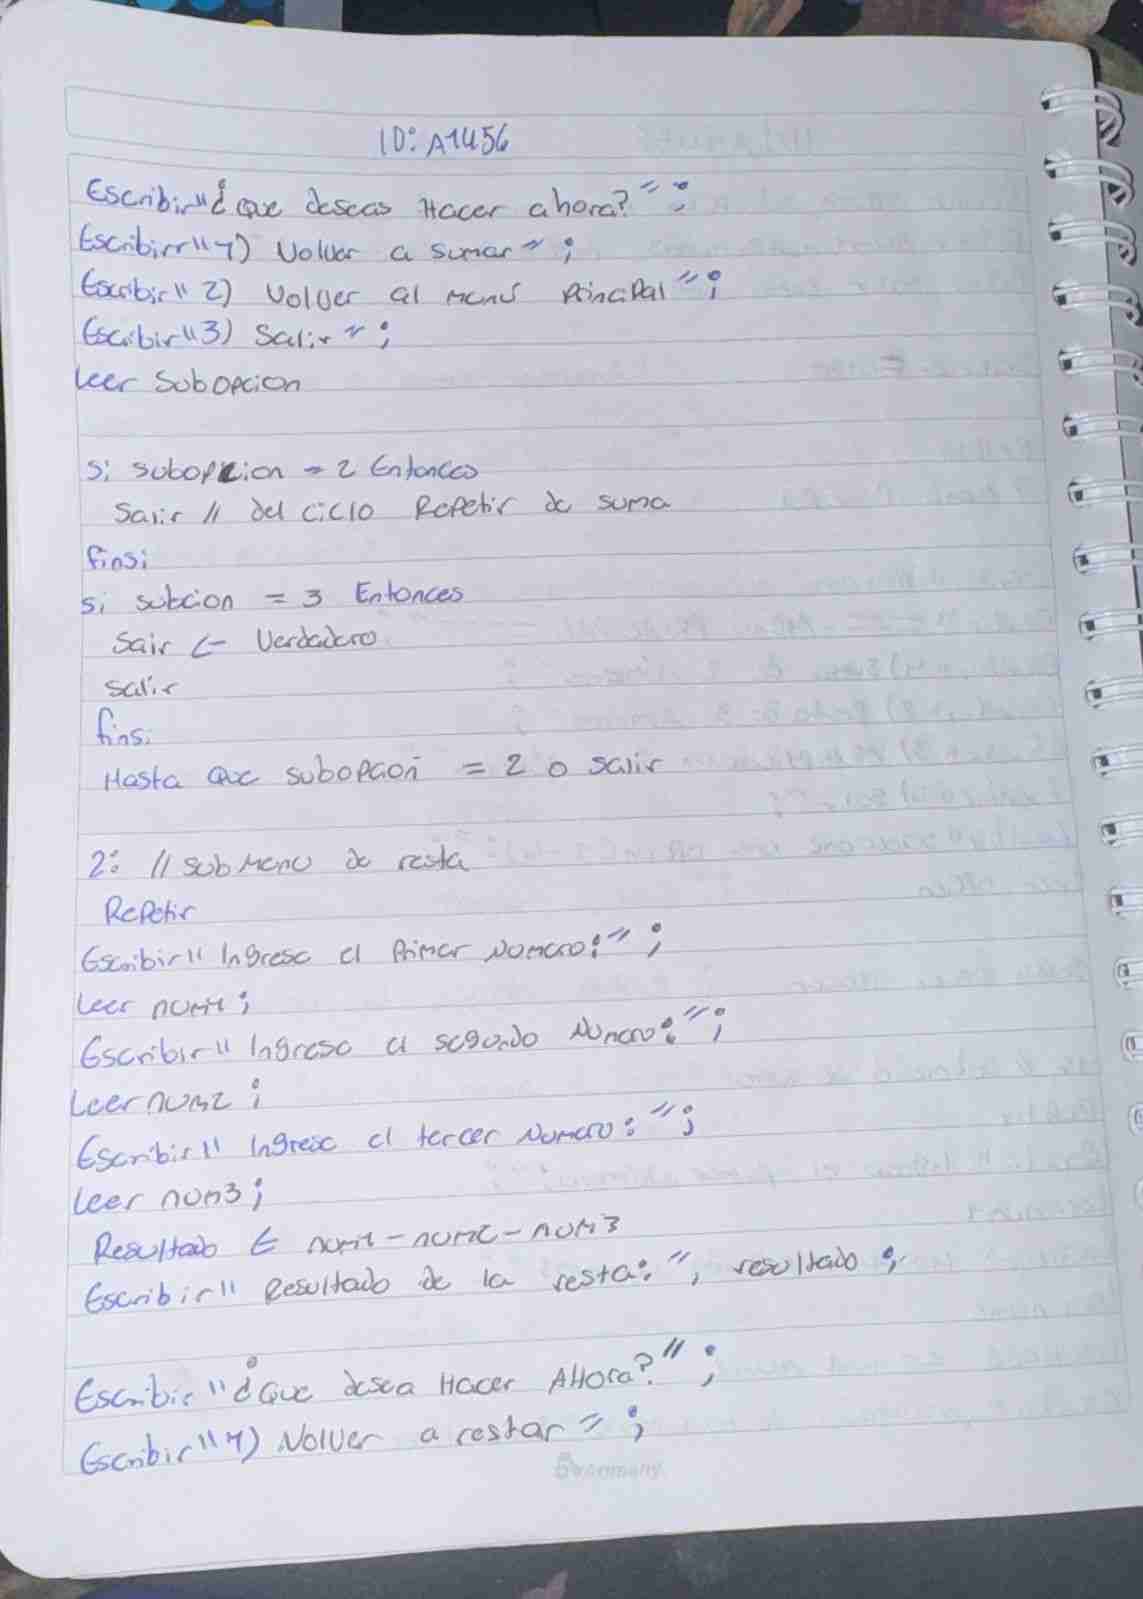 ID: A1456
Escribir"¿Que deseas Hacer ahora?";
Escribirr"1) Volver a sumar";
Escribir"2) Volver al menú Principal";
Escribir"3) Salir";
leer Subopcion
Si subopcion = 2 Entonces
Salir // del ciclo Repetir de suma
finsi
si subcion = 3 Entonces
Sair ← Verdadero
salir
finsi
Hasta Que subopcion = 2 o salir
2: // subMenu de resta
Repetir
Escribir" Ingrese el Primer Numero:";
Leer num1;
Escribir" Ingrese el segundo Numero:";
Leer num2;
Escribir" Ingrese el tercer Numero:";
Leer num3;
Resultado ← num1-num2-num3
Escribir" Resultado de la resta:", resultado;
Escribir "¿Que desea Hacer Ahora?";
Escribir"1) Volver a restar";
Germany